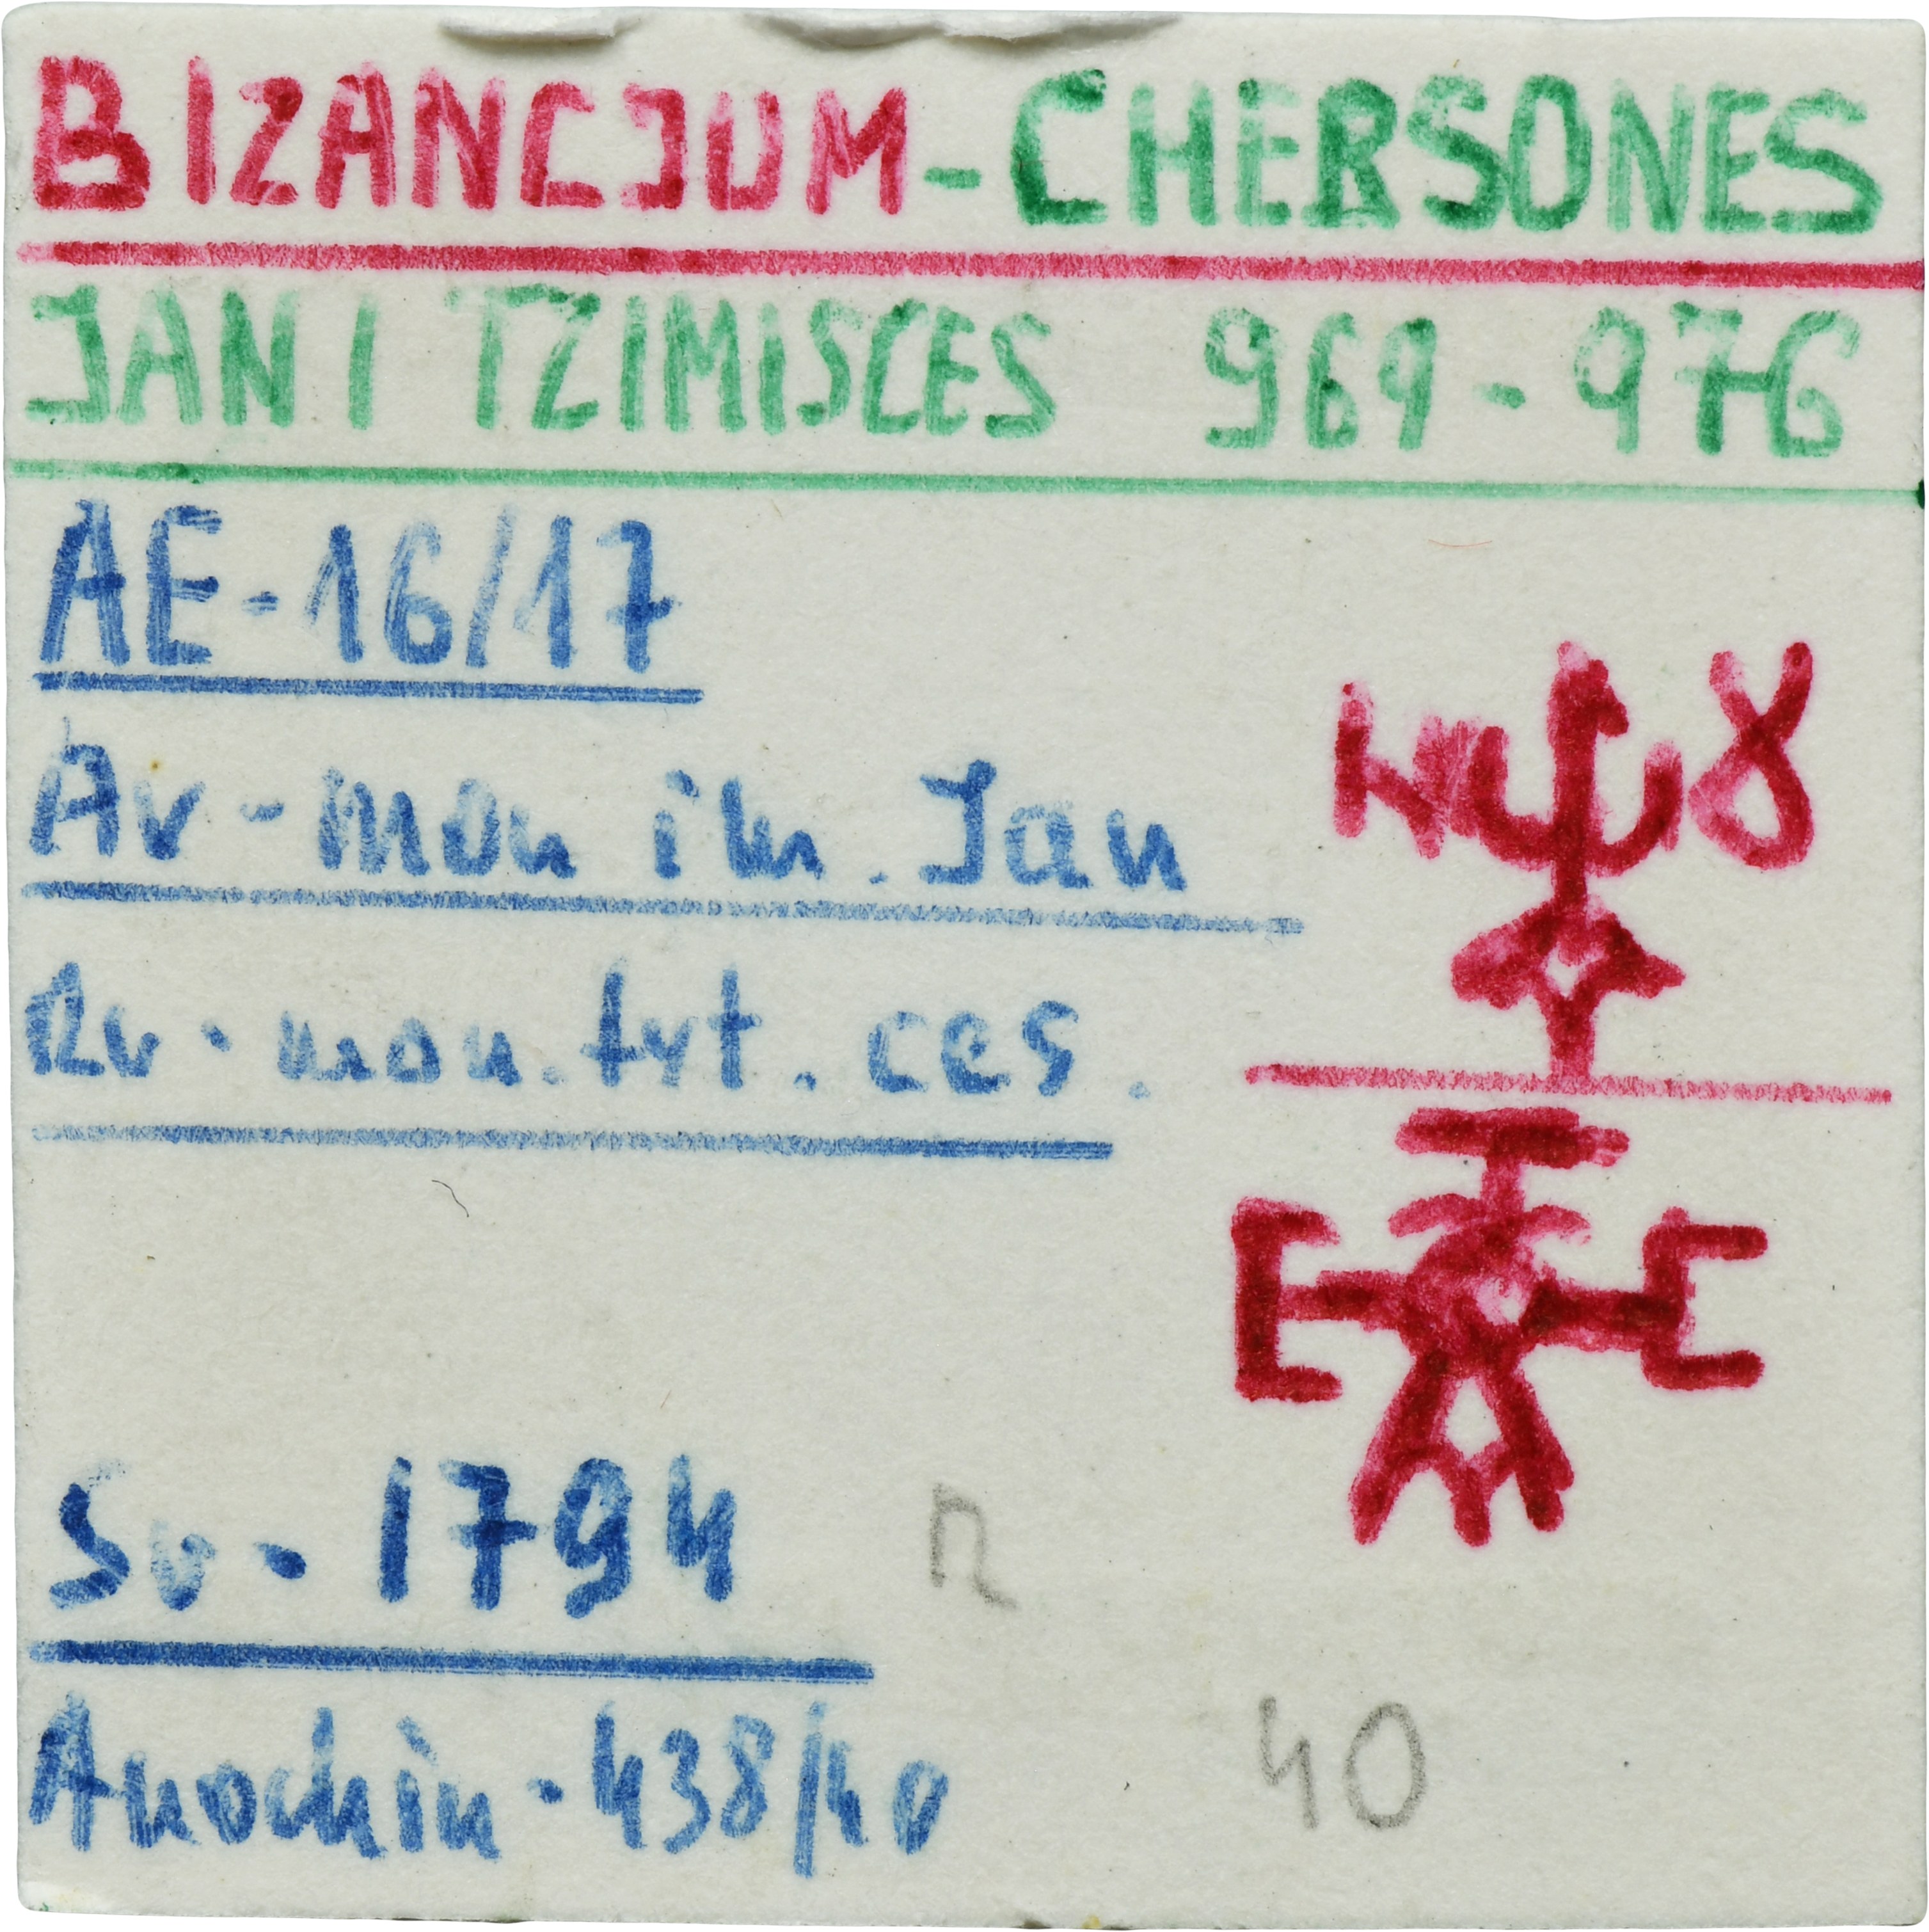 BIZANCJUM - CHERSONES
JAN I TZIMISCES 969 - 976
AE - 16/17
Av - mon im. Jan
Rv - mon. tyt. ces.
Sv - 1794 R
Anochin - 438/40
40